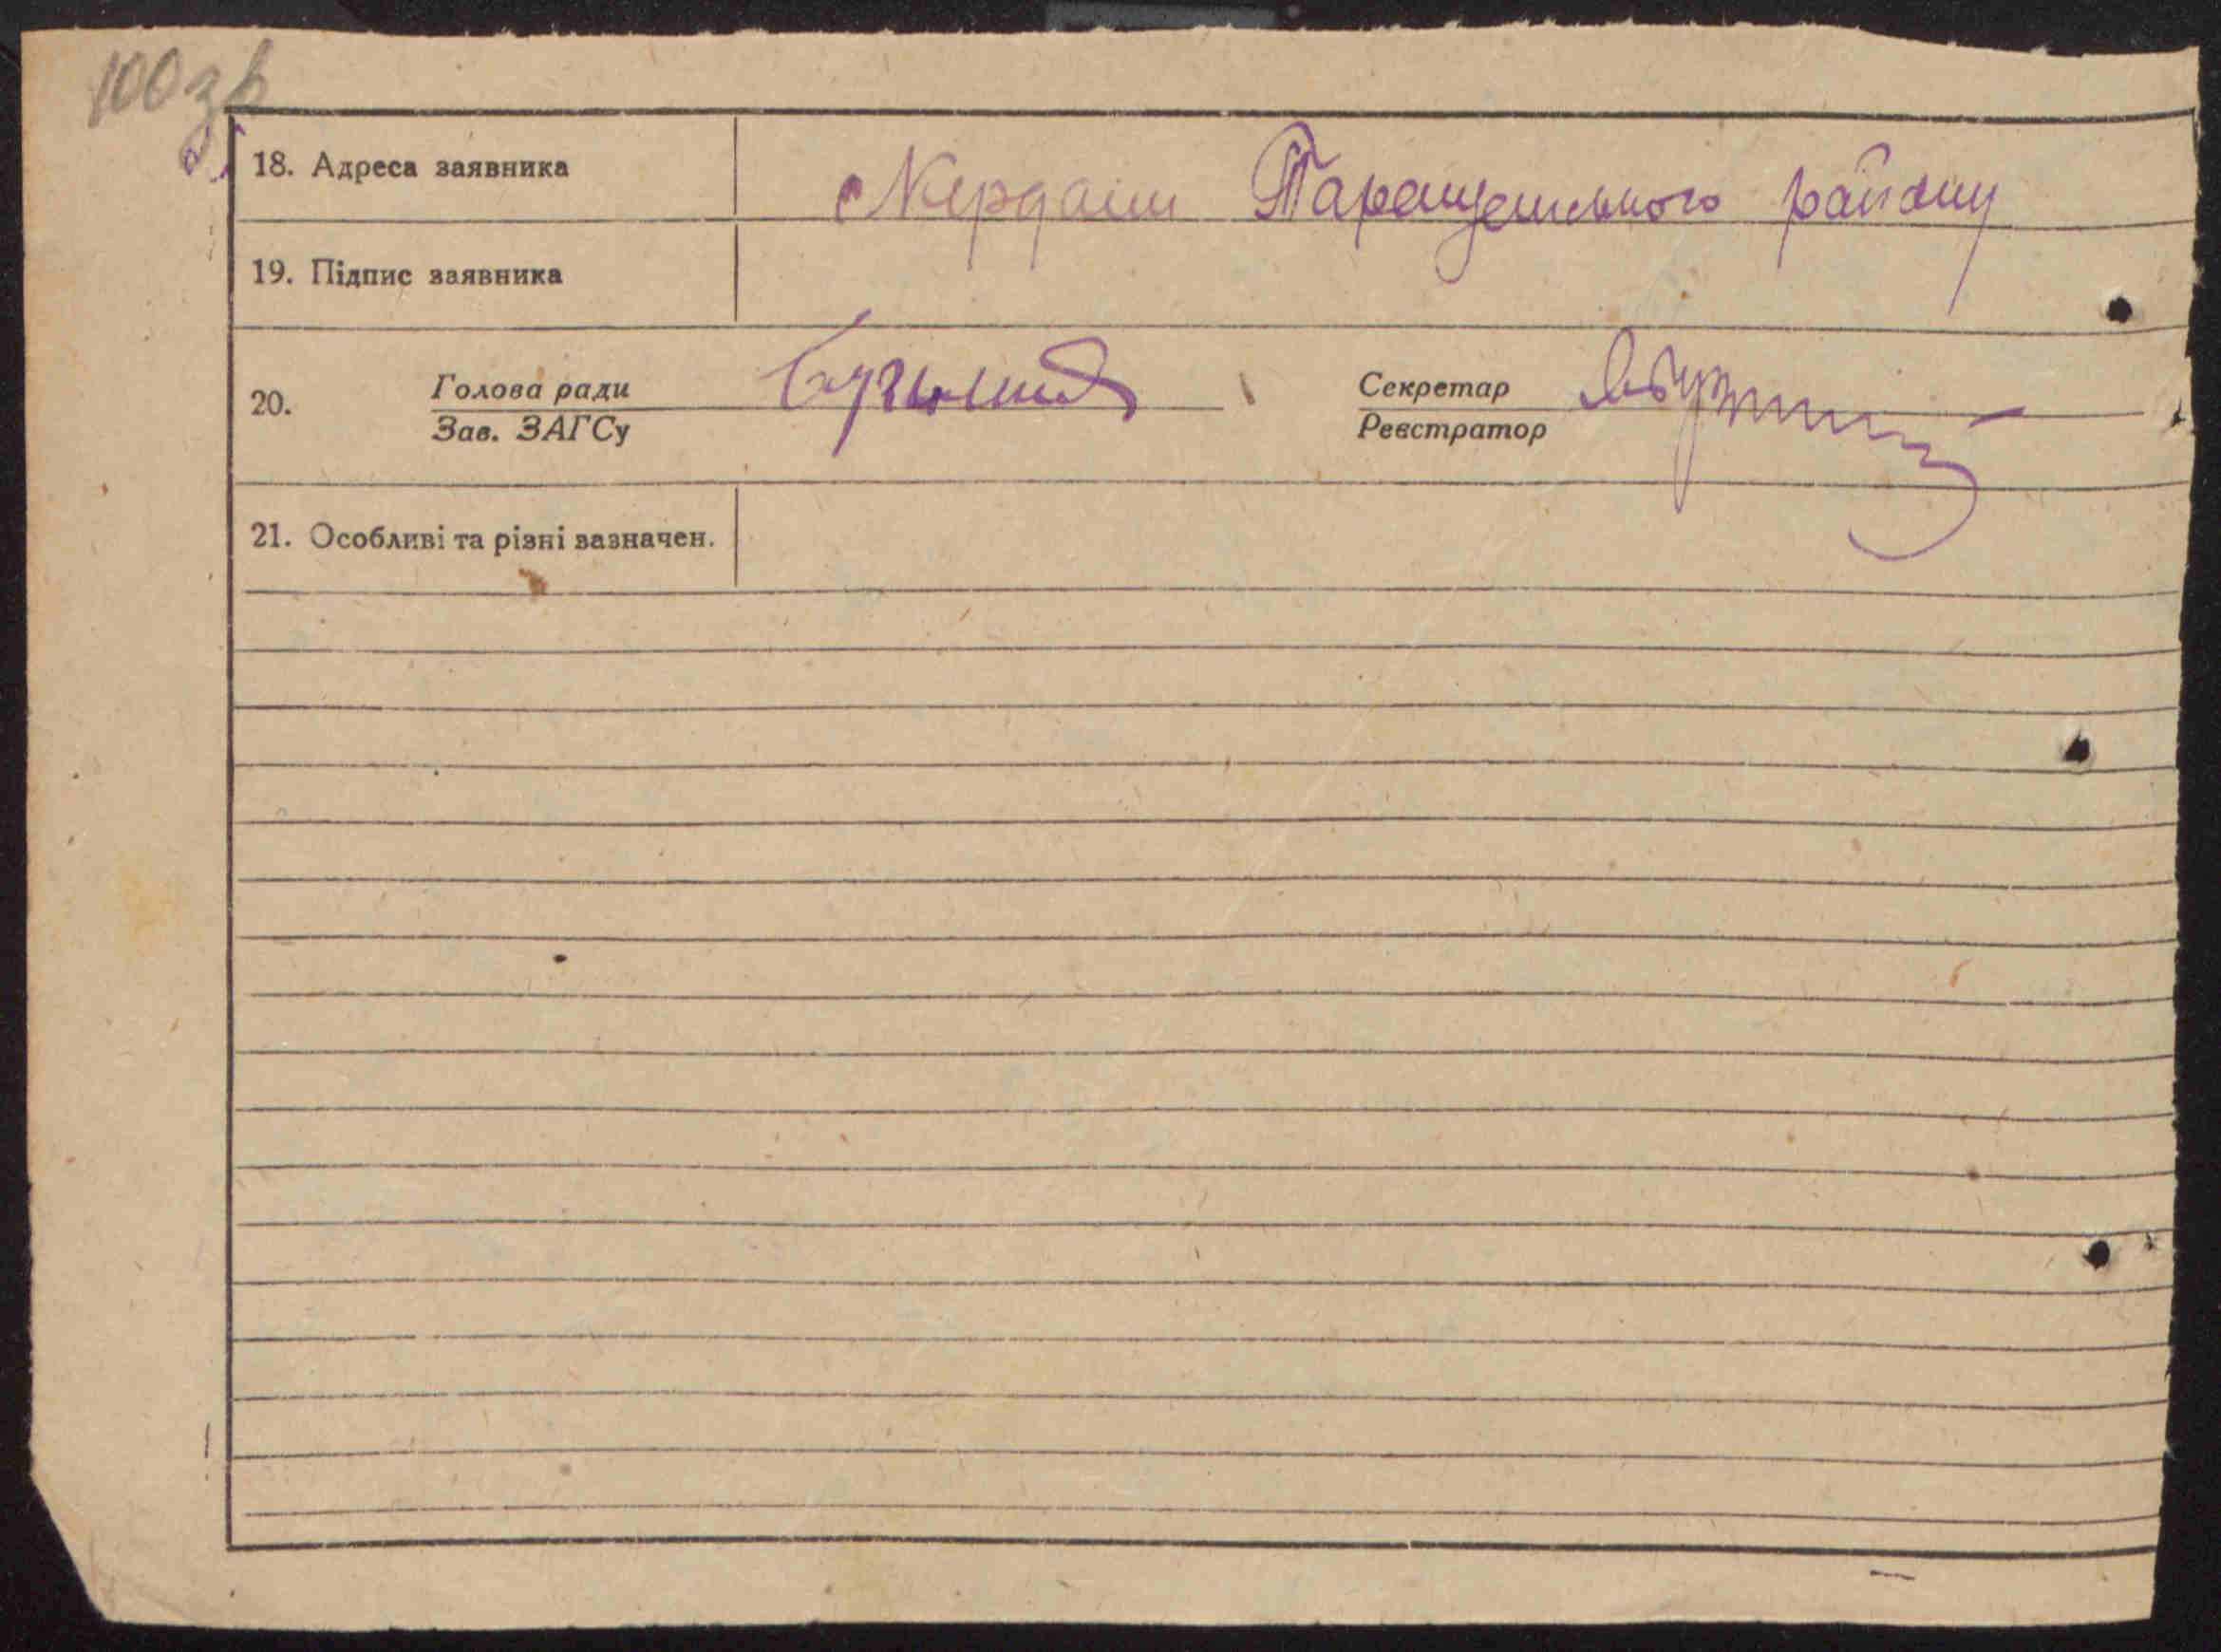 100 зв
18. Адреса заявника
с Кердани Таращенського району
19. Підпис заявника
20. Голова ради
Зав. ЗАГСу
Секретар
Реєстратор
21. Особливі та різні зазначен.